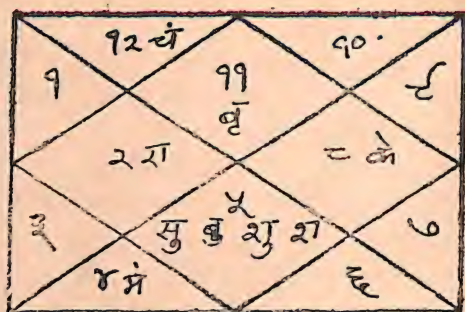 १२ चं १०
१ ११ ९
बृ
२ रा ८ के
५
३ सु बु शु श ७
४ मं ६